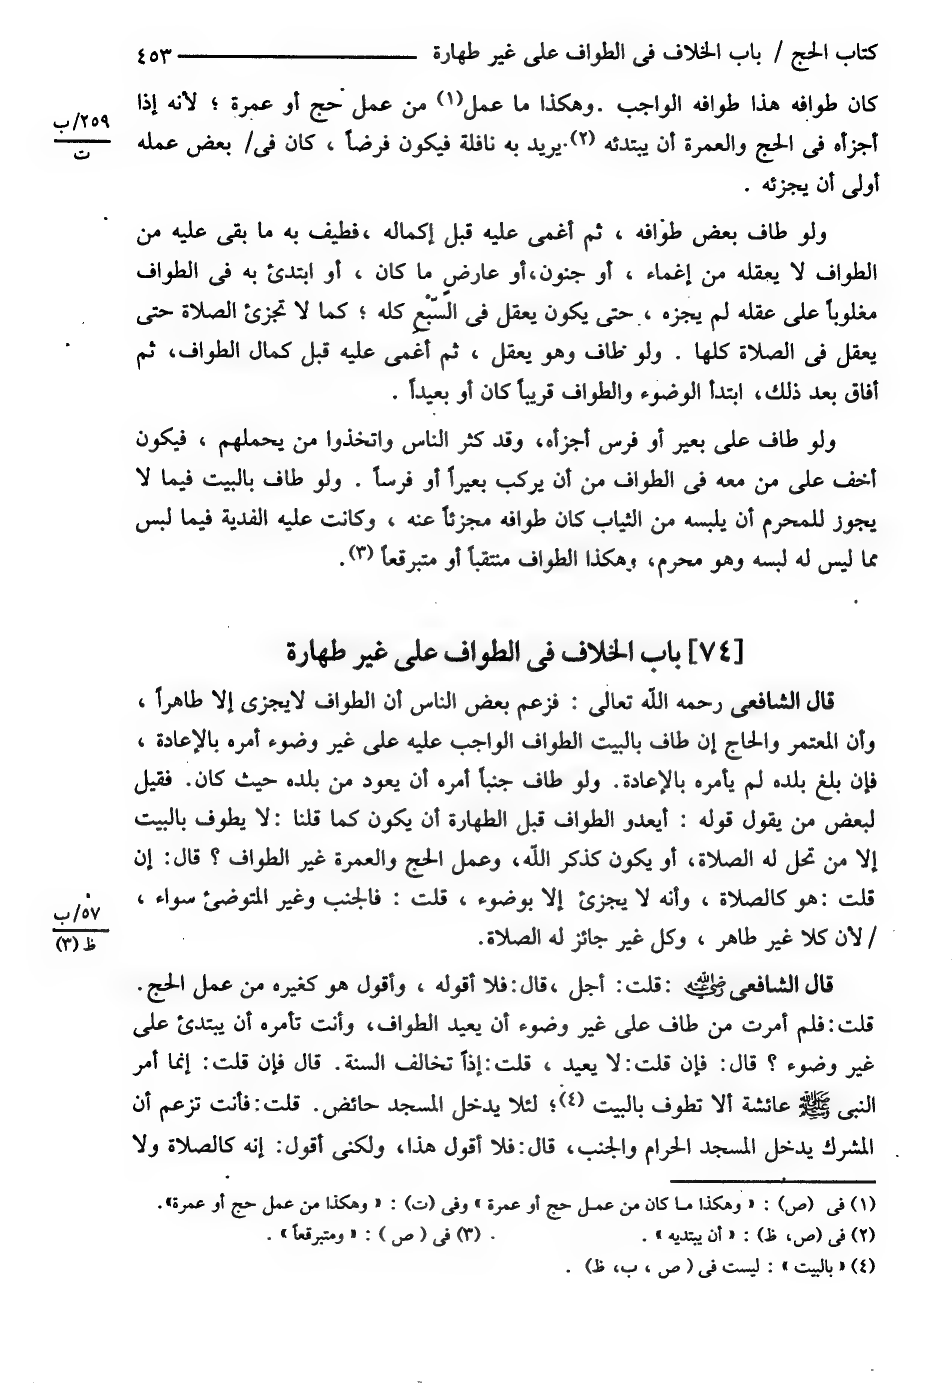 كتاب الحج / باب الخلاف فى الطواف على غير طهارة ـــــــــ ٤٥٣
كان طوافه هذا طوافه الواجب . وهكذا ما عمل(١) من عمل حج أو عمرة ؛ لأنه إذا
٢٥٩/ب
ت
أجزأه فى الحج والعمرة أن يبتدئه (٢) يريد به نافلة فيكون فرضاً ، كان فى/ بعض عمله
أولى أن يجزئه .
ولو طاف بعض طوافه ، ثم أغمى عليه قبل إكماله ،فطيف به ما بقى عليه من
الطواف لا يعقله من إغماء ، أو جنون،أو عارضٍ ما كان ، أو ابتدئ به فى الطواف
مغلوباً على عقله لم يجزه ، حتى يكون يعقل فى السَّبْعِ كله ؛ كما لا تجزئ الصلاة حتى
يعقل فى الصلاة كلها . ولو طاف وهو يعقل ، ثم أغمى عليه قبل كمال الطواف، ثم
أفاق بعد ذلك، ابتدأ الوضوء والطواف قريباً كان أو بعيداً .
ولو طاف على بعير أو فرس أجزأه، وقد كثر الناس واتخذوا من يحملهم ، فيكون
أخف على من معه فى الطواف من أن يركب بعيراً أو فرساً . ولو طاف بالبيت فيما لا
يجوز للمحرم أن يلبسه من الثياب كان طوافه مجزئاً عنه ، وكانت عليه الفدية فيما لبس
مما ليس له لبسه وهو محرم، وهكذا الطواف منتقباً أو متبرقعاً (٣).
[٧٤] باب الخلاف فى الطواف على غير طهارة
قال الشافعى رحمه الله تعالى : فزعم بعض الناس أن الطواف لايجزى إلا طاهراً ،
وأن المعتمر والحاج إن طاف بالبيت الطواف الواجب عليه على غير وضوء أمره بالإعادة ،
فإن بلغ بلده لم يأمره بالإعادة. ولو طاف جنباً أمره أن يعود من بلده حيث كان. فقيل
لبعض من يقول قوله : أيعدو الطواف قبل الطهارة أن يكون كما قلنا :لا يطوف بالبيت
إلا من تحل له الصلاة، أو يكون كذكر الله، وعمل الحج والعمرة غير الطواف ؟ قال: إن
قلت :هو كالصلاة ، وأنه لا يجزئ إلا بوضوء ، قلت : فالجنب وغير المتوضئ سواء ،
٥٧/ب
ظ (٣)
/لأن كلا غير طاهر ، وكل غير جائز له الصلاة.
قال الشافعى رضي الله عنه :قلت: أجل ،قال:فلا أقوله ، وأقول هو كغيره من عمل الحج.
قلت:فلم أمرت من طاف على غير وضوء أن يعيد الطواف، وأنت تأمره أن يبتدئ على
غير وضوء ؟ قال: فإن قلت:لا يعيد ، قلت:إذاً تخالف السنة. قال فإن قلت: إنما أمر
النبى ﷺ عائشة ألا تطوف بالبيت (٤)؛ لئلا يدخل المسجد حائض. قلت:فأنت تزعم أن
المشرك يدخل المسجد الحرام والجنب، قال:فلا أقول هذا، ولكنى أقول: إنه كالصلاة ولا
(١) فى (ص) : « وهكذا ما كان من عمل حج أو عمرة » وفى (ت) : « وهكذا من عمل حج أو عمرة».
(٢) فى (ص، ظ) : « أن يبتديه » . (٣) فى ( ص ) : « ومتبرقعاً » .
(٤) « بالبيت » : ليست فى ( ص ، ب، ظ) .